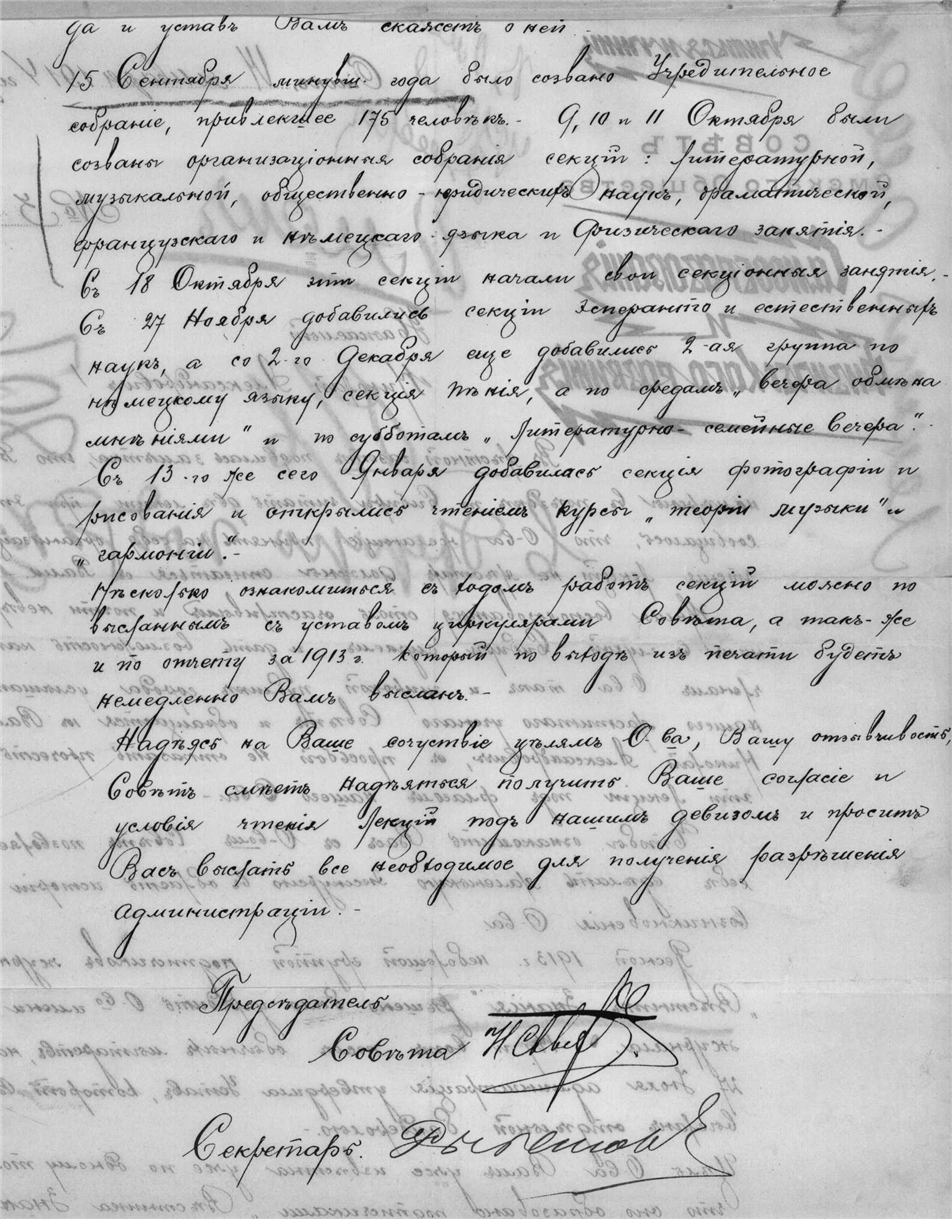 да и уставъ Вамъ скажетъ о ней
15 Сентября минувш. года было созвано Учредительное
собраніе, привлекшее 175 человѣкъ.- 9, 10 и 11 Октября были
созваны организаціонныя собранія секцій: литературной,
музыкальной, общественно-юридическихъ наукъ, драматической,
французскаго и нѣмецкаго языка и физическаго занятія.-
Съ 18 Октября эти секціи начали свои секціонныя занятія.-
Съ 27 Ноября добавились секціи эсперанто и естественныхъ
наукъ, а со 2-го Декабря еще добавились 2-ая группа по
нѣмецкому языку, секція пѣнія, а по средамъ „вечера обмѣна
мнѣніями" и по субботамъ „литературно-семейные вечера".-
Съ 13-го же сего Января добавилась секція фотографіи и
рисованія и открылись чтеніемъ курсы „теоріи музыки" и
„гармоніи".-
Нѣсколько ознакомиться съ ходомъ работъ секцій можно по
высланнымъ съ уставомъ циркулярами Совѣта, а такъ-же
и по отчету за 1913 г. который по выходѣ изъ печати будетъ
немедленно Вамъ высланъ.-
Надѣясь на Ваше сочуствіе цѣлямъ О.ва, Вашу отзывчивость,
Совѣтъ смѣетъ надѣяться получить Ваше согласіе и
условія чтенія лекцій подъ нашимъ девизомъ и проситъ
Васъ выслать все необходимое для полученія разрѣшенія
администраціи.-
Предсѣдатель
Совѣта
Секретарь.